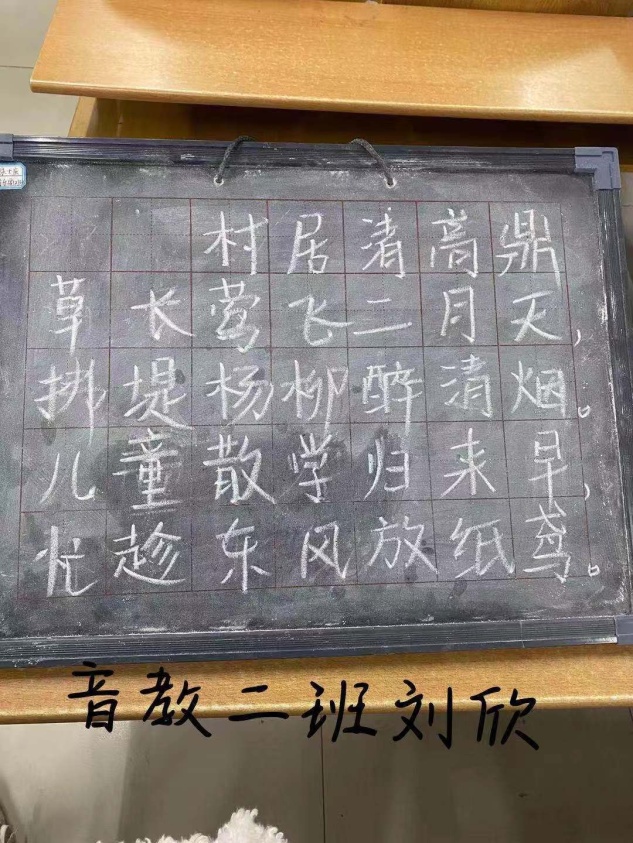 村居清高鼎
草长莺飞二月天，
拂堤杨柳醉清烟。
儿童散学归来早，
忙趁东风放纸鸢。
音教二班刘欣